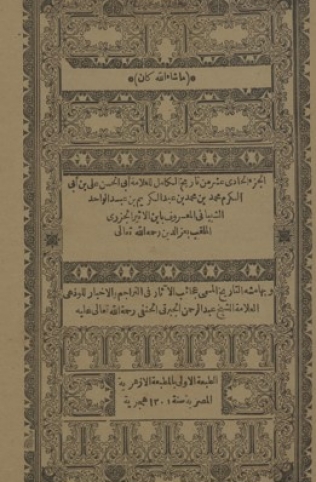 *(ماشاء الله كان)*
الجزء الحادى عشر من تاريخ الكامل للعلامة أبى الحسن على بن أبى
الكرم محمد بن محمد بن عبد الكريم بن عبد الواحد
الشيبانى المعروف بابن الاثير الجزرى
الملقب بعز الدين رحمه الله تعالى
وبهامشه التاريخ المسمى عجائب الآثار فى التراجم والاخبار للوذعى
العلامة الشيخ عبد الرحمن الجبرتى الحنفى رحمة الله تعالى عليه
الطبعة الاولى بالمطبعة الازهرية
المصرية سنة ١٣٠١ هجرية